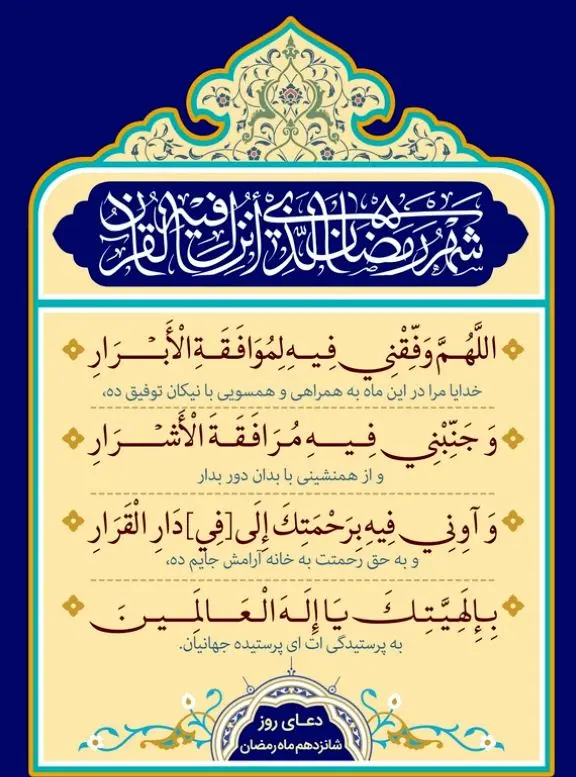 شهر رمضان الذي أنزل فيه القرآن
اللَّهُمَّ وَفِّقْنِي فِيهِ لِمُوَافَقَةِ الْأَبْرَارِ
خدایا مرا در این ماه به همراهی و همسویی با نیکان توفیق ده،
وَ جَنِّبْنِي فِيهِ مُرَافَقَةَ الْأَشْرَارِ
و از همنشینی با بدان دور بدار
وَ آوِنِي فِيهِ بِرَحْمَتِكَ إِلَى [فِي] دَارِ الْقَرَارِ
و به حق رحمتت به خانه آرامش جایم ده،
بِإِلَهِيَّتِكَ يَا إِلَهَ الْعَالَمِينَ
به پرستیدگی ات ای پرستیده جهانیان.
دعای روز
شانزدهم ماه رمضان